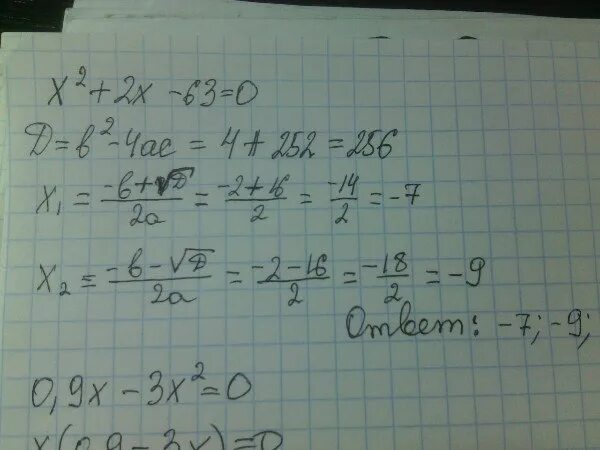 x² + 2x - 63 = 0
Д = b² - 4ac = 4 + 252 = 256
x₁ = (-b + √Д)/2a = (-2 + 16)/2 = -14/2 = -7
x₂ = (-b - √Д)/2a = (-2 - 16)/2 = -18/2 = -9
Ответ: -7; -9;
0,9x - 3x² = 0
x(0,9 - 3x) = 0